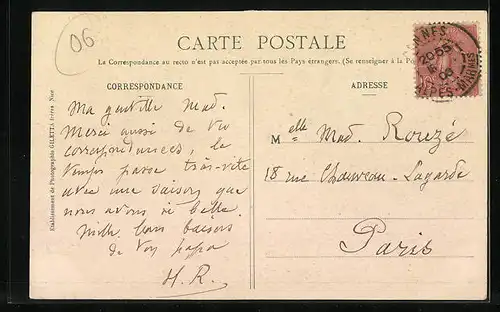 06
CARTE POSTALE
La Correspondance au recto n'est pas acceptée par tous les Pays étrangers. (Se renseigner à la Poste)
CORRESPONDANCE
Ma gentille Mad.
Merci aussi de vos
correspondances, le
temps passe très-vite
avec une saison que
nous avons si belle.
Mille bons baisers
de ton papa
H. R.
ADRESSE
Melle Mad. Rouzé
18 rue Chauveau-Lagarde
Paris
CANNES
20-55
06
ALPES-MARITIMES
Etablissement de Photographie GILETTA frères Nice